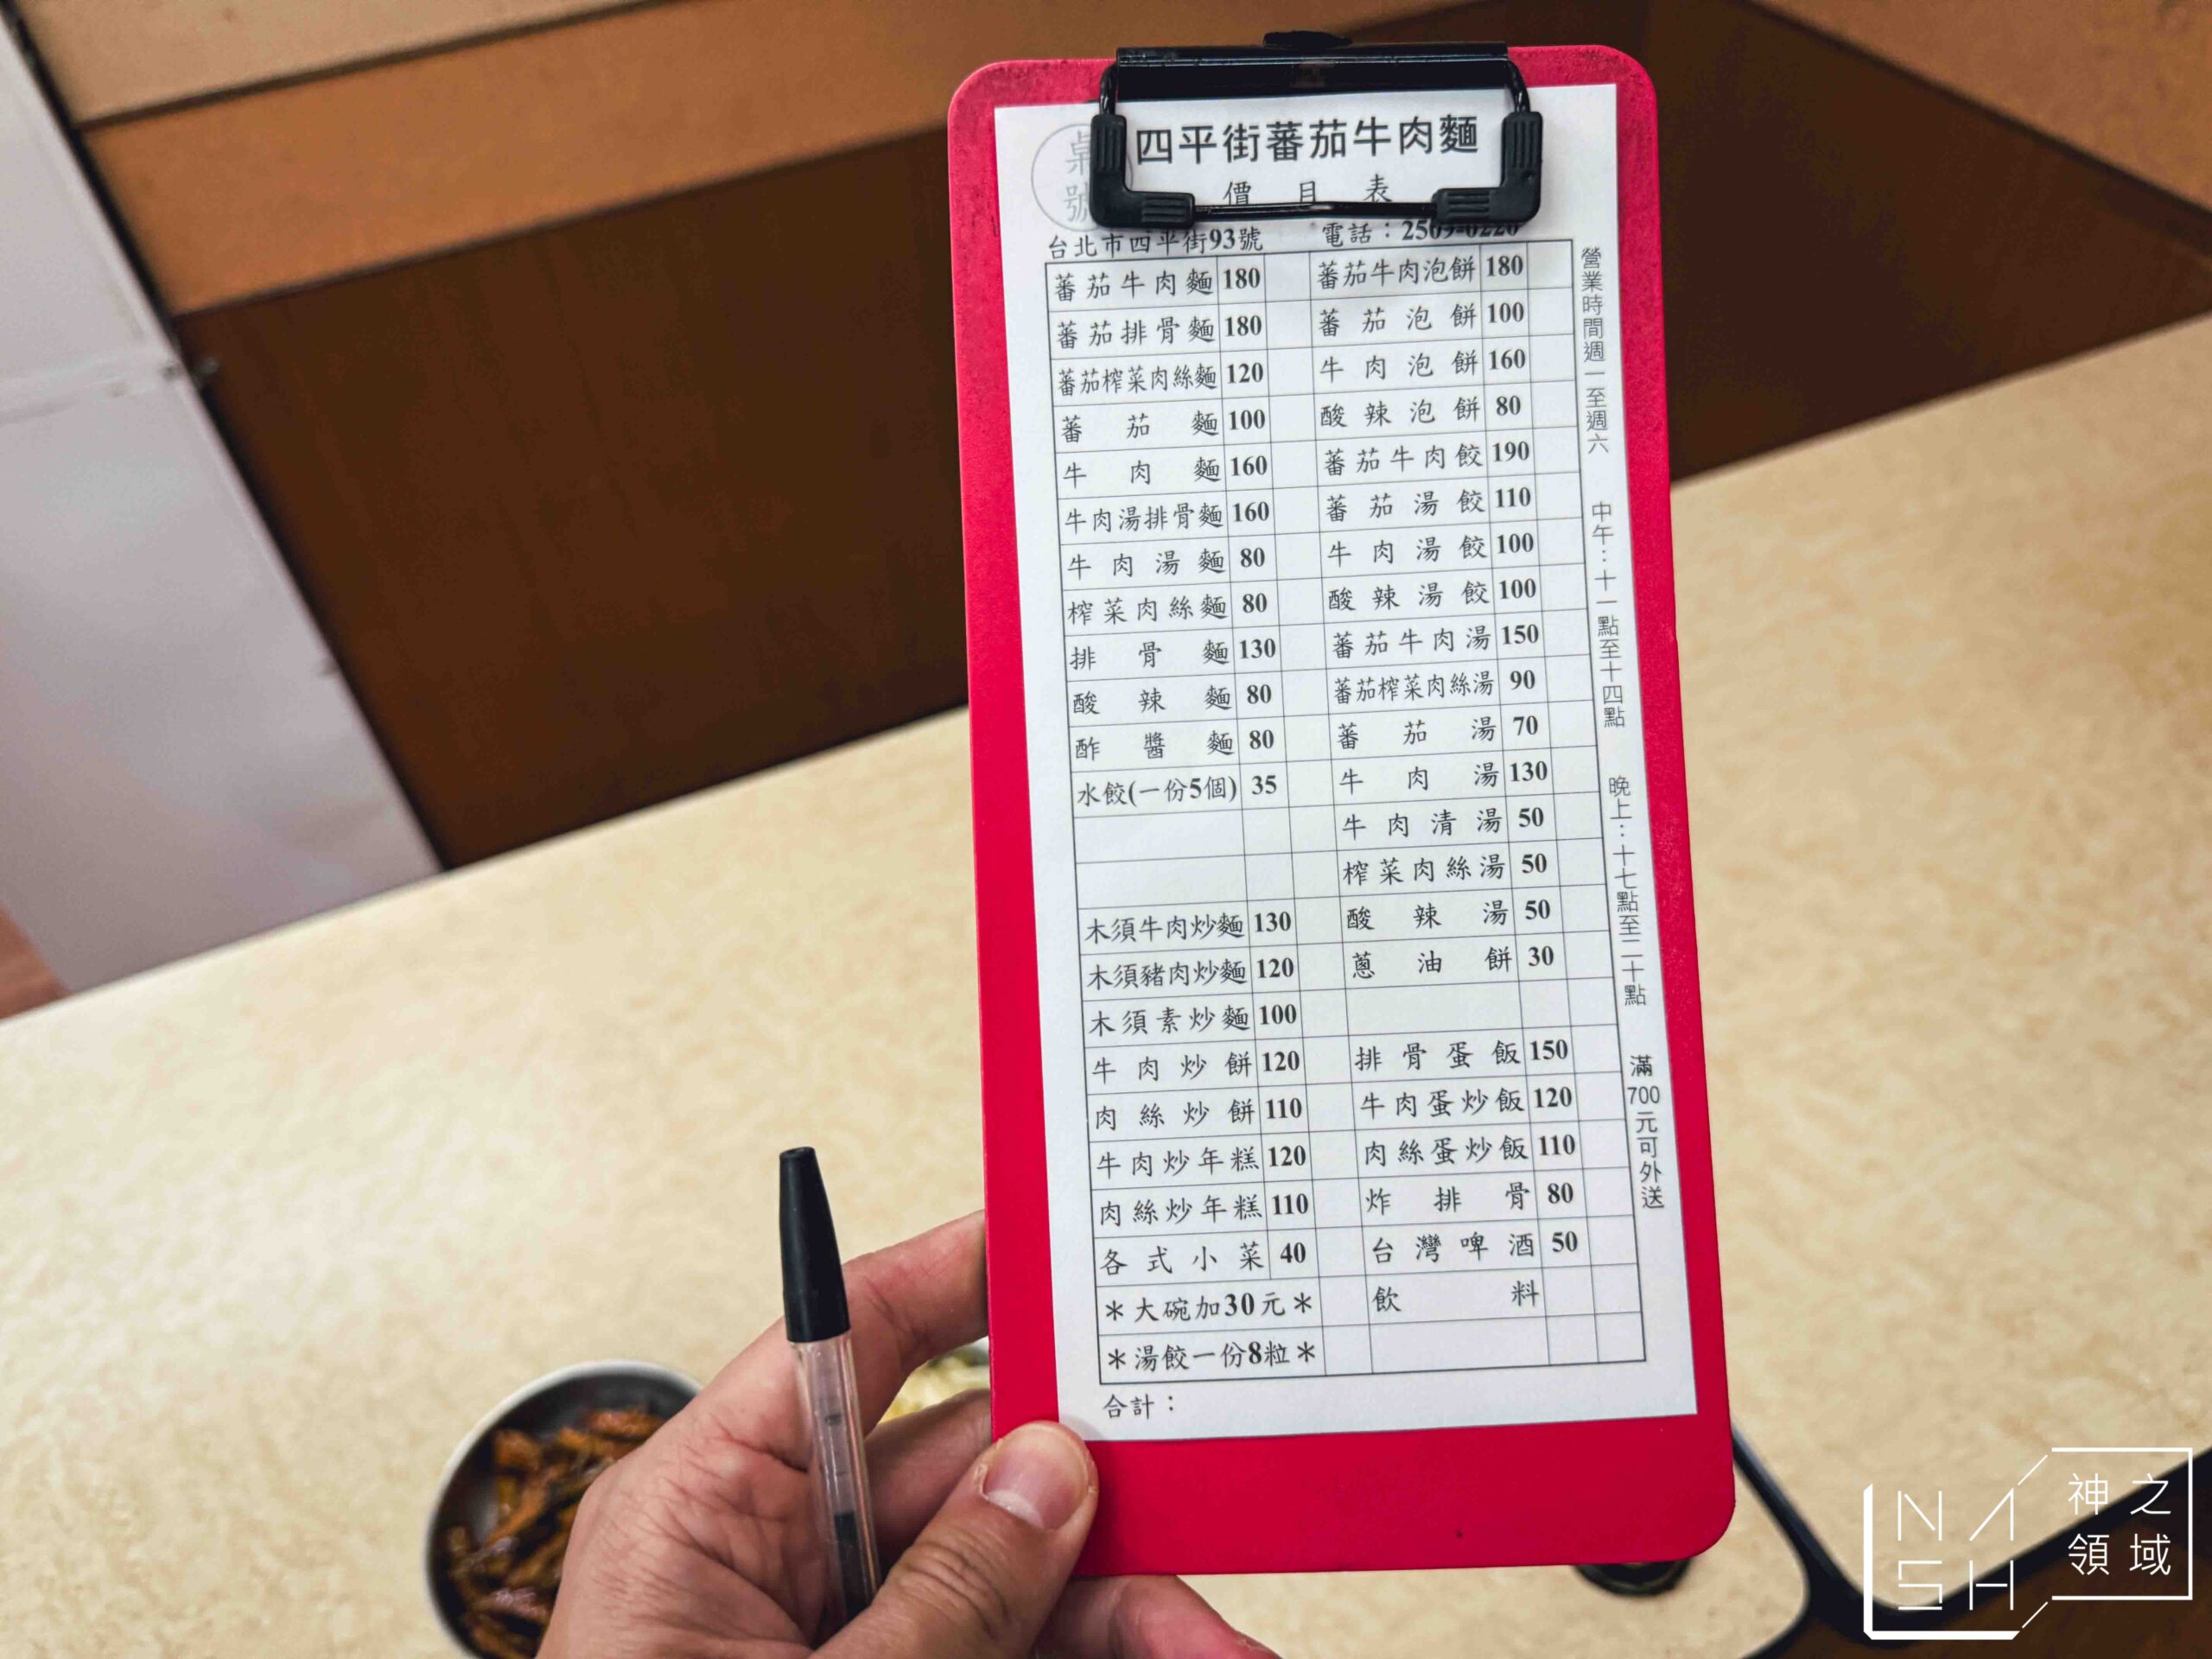 桌號
四平街蕃茄牛肉麵
價目表
台北市四平街93號 電話：2509-0220
蕃茄牛肉麵 180 蕃茄牛肉泡餅 180
蕃茄排骨麵 180 蕃茄泡餅 100
蕃茄榨菜肉絲麵 120 牛肉泡餅 160
蕃茄麵 100 酸辣泡餅 80
牛肉麵 160 蕃茄牛肉餃 190
牛肉湯排骨麵 160 蕃茄湯餃 110
牛肉湯麵 80 牛肉湯餃 100
榨菜肉絲麵 80 酸辣湯餃 100
排骨麵 130 蕃茄牛肉湯 150
酸辣麵 80 蕃茄榨菜肉絲湯 90
酢醬麵 80 蕃茄湯 70
水餃(一份5個) 35 牛肉湯 130
牛肉清湯 50
榨菜肉絲湯 50
木須牛肉炒麵 130 酸辣湯 50
木須豬肉炒麵 120 蔥油餅 30
木須素炒麵 100
牛肉炒餅 120 排骨蛋飯 150
肉絲炒餅 110 牛肉蛋炒飯 120
牛肉炒年糕 120 肉絲蛋炒飯 110
肉絲炒年糕 110 炸排骨 80
各式小菜 40 台灣啤酒 50
＊大碗加30元＊ 飲料
＊湯餃一份8粒＊
合計：
營業時間週一至週六 中午：十一點至十四點 晚上：十七點至二十點 滿700元可外送
NASH
神之領域